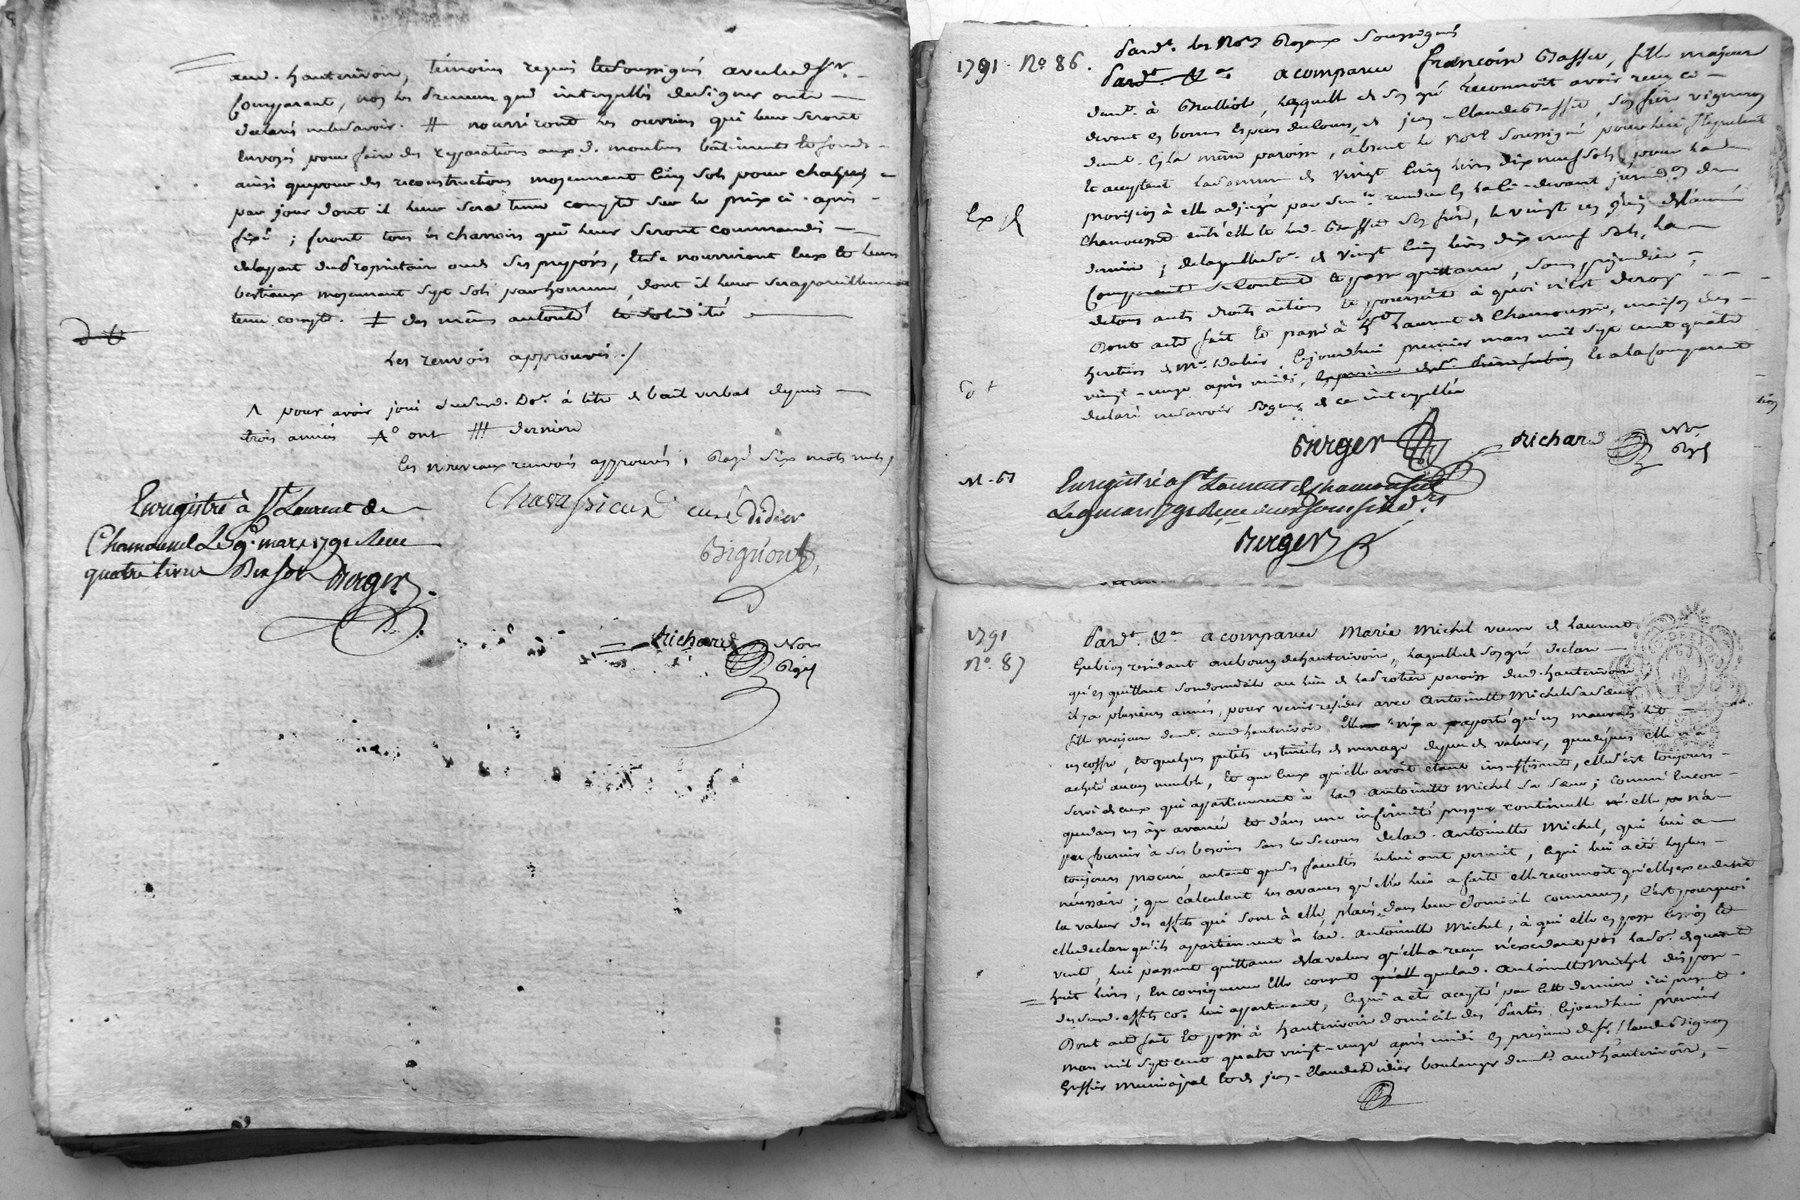 aud. hauterivoir, témoins requis et soussignés avec led. Sr.
Comparant, non les preneurs qui interpellés de signer ont
déclaré ne le savoir. # nourriront les ouvriers qui leur seront
envoyés pour faire des réparations aux d. moulins bâtiments et fonds
ainsi que pour des reconstructions moyennant cinq sols pour chaque
par jour dont il leur sera tenu compte sur le prix ci-après
fixé; feront tous les charrois qui leur seront commandés
de la part du propriétaire ou de ses préposés, et se nourriront eux et leurs
bestiaux moyennant sept sols par homme, dont il leur sera pareillement
tenu compte. ‡ des mêmes autorité et solidité
les renvois approuvés./.
Λ pour avoir joui dud. Dne. à titre de bail verbal depuis
trois années A° ont ### dernière
les nouveaux renvois approuvés, Rayé six mots nuls
Enregistré à St Laurent de
Chamousset Le 9. mars 1791 Reçu
quatre livres Dix sols Berger
Chavassieux curé Didier
Bignon
Richard Nre
Royal
1791 Nº 86. Pardt. les Nores Royaux Soussignés
Pardt. &a a comparu françoise Basset, fille majeure
demt. à Brulliole, laquelle de son gré reconnoit avoir reçu ci-
devant en bonnes espèces du cours, de jean-Claude Basset, son frère vigneron
demt. en la même paroisse, absent le Nore Soussigné, pour lui stipulant
et acceptant la somme de vingt cinq livres dix neuf sols, pour la
provision à elle adjugée par sence rendue en la ci-devant jurisdon de
Ex
Chamousset entr'elle et led. Basset son frère, le vingt
dernier; de laquelle so. de vingt cinq livres dix neuf sols, la
Comparante se contente et passe quittance, sans préjudice
de tous autres droits actions et poursuite à quoi n'est dérogé
Dont acte fait et passé à St Laurent de Chamousset, maison des
héritiers de Mr. Dalier, cejourdhui premier mars mil sept cent quatre
vingt-onze après midi, et a la Comparante
déclaré ne savoir signer de ce interpellée
Berger Richard Nre
Royal
Enregistré a St Laurent de Chamousset
Le 9 mars 1791 Reçu
Berger
1791
Nº. 87
Pardt. &a a comparu Marie Michel veuve de Laurent
résidant au bourg de hauterivoir, laquelle de son gré déclare
qu'en quittant son domicile au lieu de paroisse dud. hauterivoir
il y a plusieurs années, pour venir résider avec Antoinette Michel sa sœur
fille majeure demt. aud hauterivoir elle n'y a apporté qu'un mauvais lit
un coffre, et quelques petits ustensiles de ménage de peu de valeur, que depuis elle n'a
acheté aucun meuble, et que ceux qu'elle avoit étant insuffisants, elle s'est toujours
servi de ceux qui appartiennent à lad. Antoinette Michel sa sœur; comme encore
que dans un âge avancé et dans une infirmité presque continuelle elle n'a
pu fournir à ses besoins sans le secours de lad. Antoinette Michel, qui lui a
toujours procuré autant que ses facultés le lui ont permit, ce qui lui a été le plus
nécessaire; que calculant les avances qu'elle lui a faite elle reconnoit qu'elles excedent
la valeur des effets qui sont à elle, placés dans leur domicile commun, C'est pourquoi
elle déclare qu'ils appartiennent à lad. Antoinette Michel, à qui elle en passe cession et
vente, lui passant quittance de la valeur qu'elle a reçu n'excedant pas la so. de quarante
huit livres, En conséquence elle consent que lad. Antoinette Michel dispose
desdits effets co. lui appartenant, ce qui a été accepté par cette dernière ici présente
Dont acte fait et passé à hauterivoir domicile des Parties cejourdhui premier
mars mil sept cent quatre vingt-onze après midi en présence de Sr. Claude Bignon
Greffier Municipal et de jean-Claude Didier boulanger demt. aud hauterivoire,